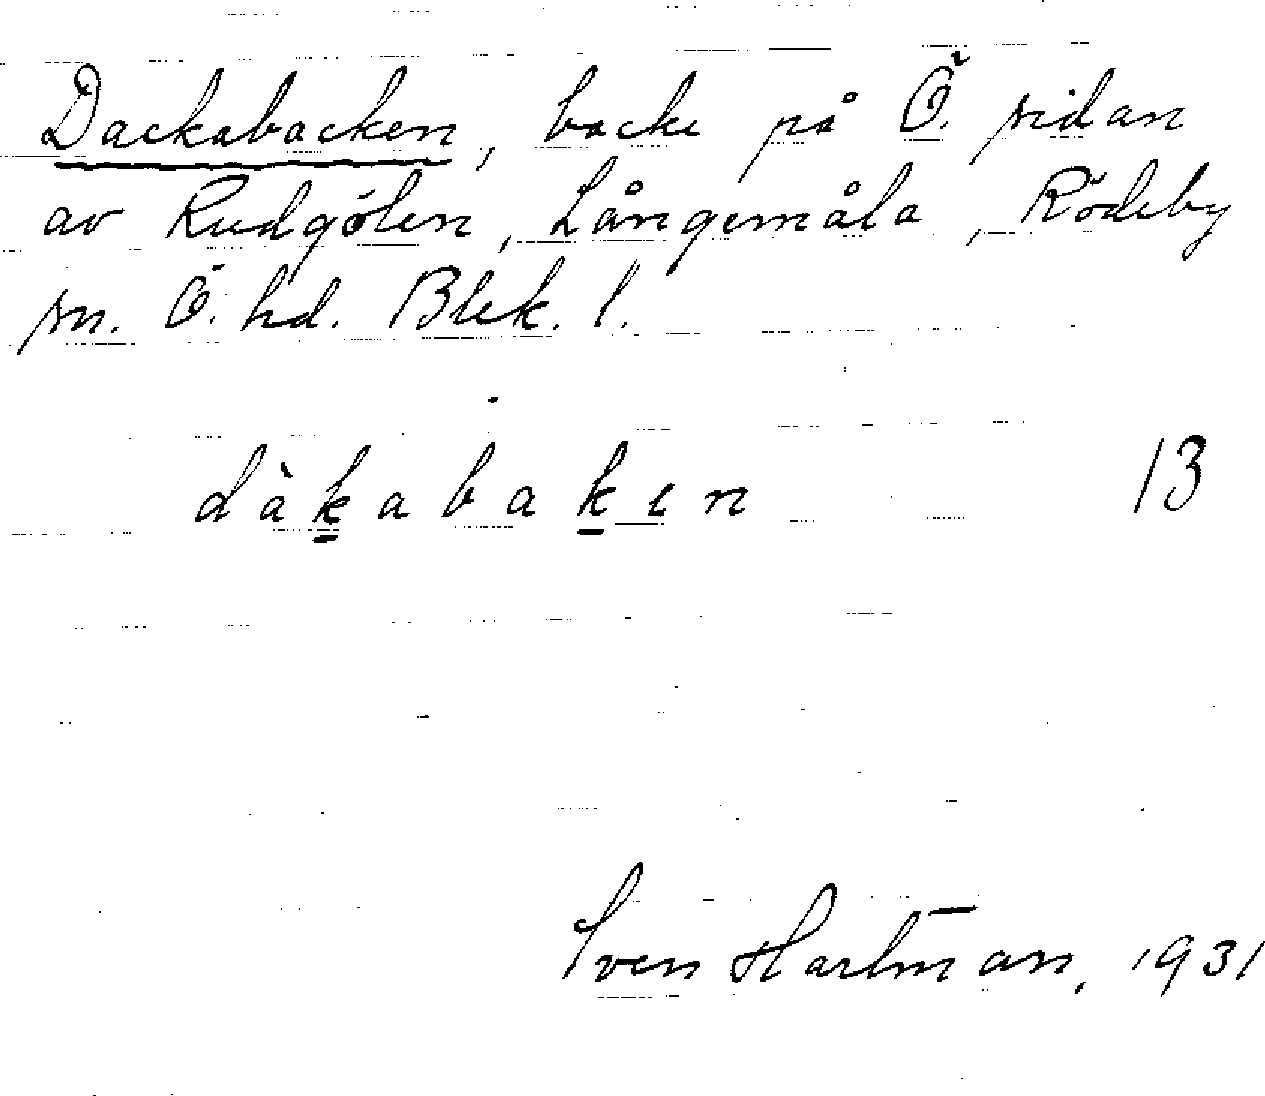 Dackabacken, backe på Ö. sidan
av Rudgölen, Långemåla, Rödeby
sn. Ö. hd. Blek. l.
dàkabakın 13
Sven Hartman, 1931